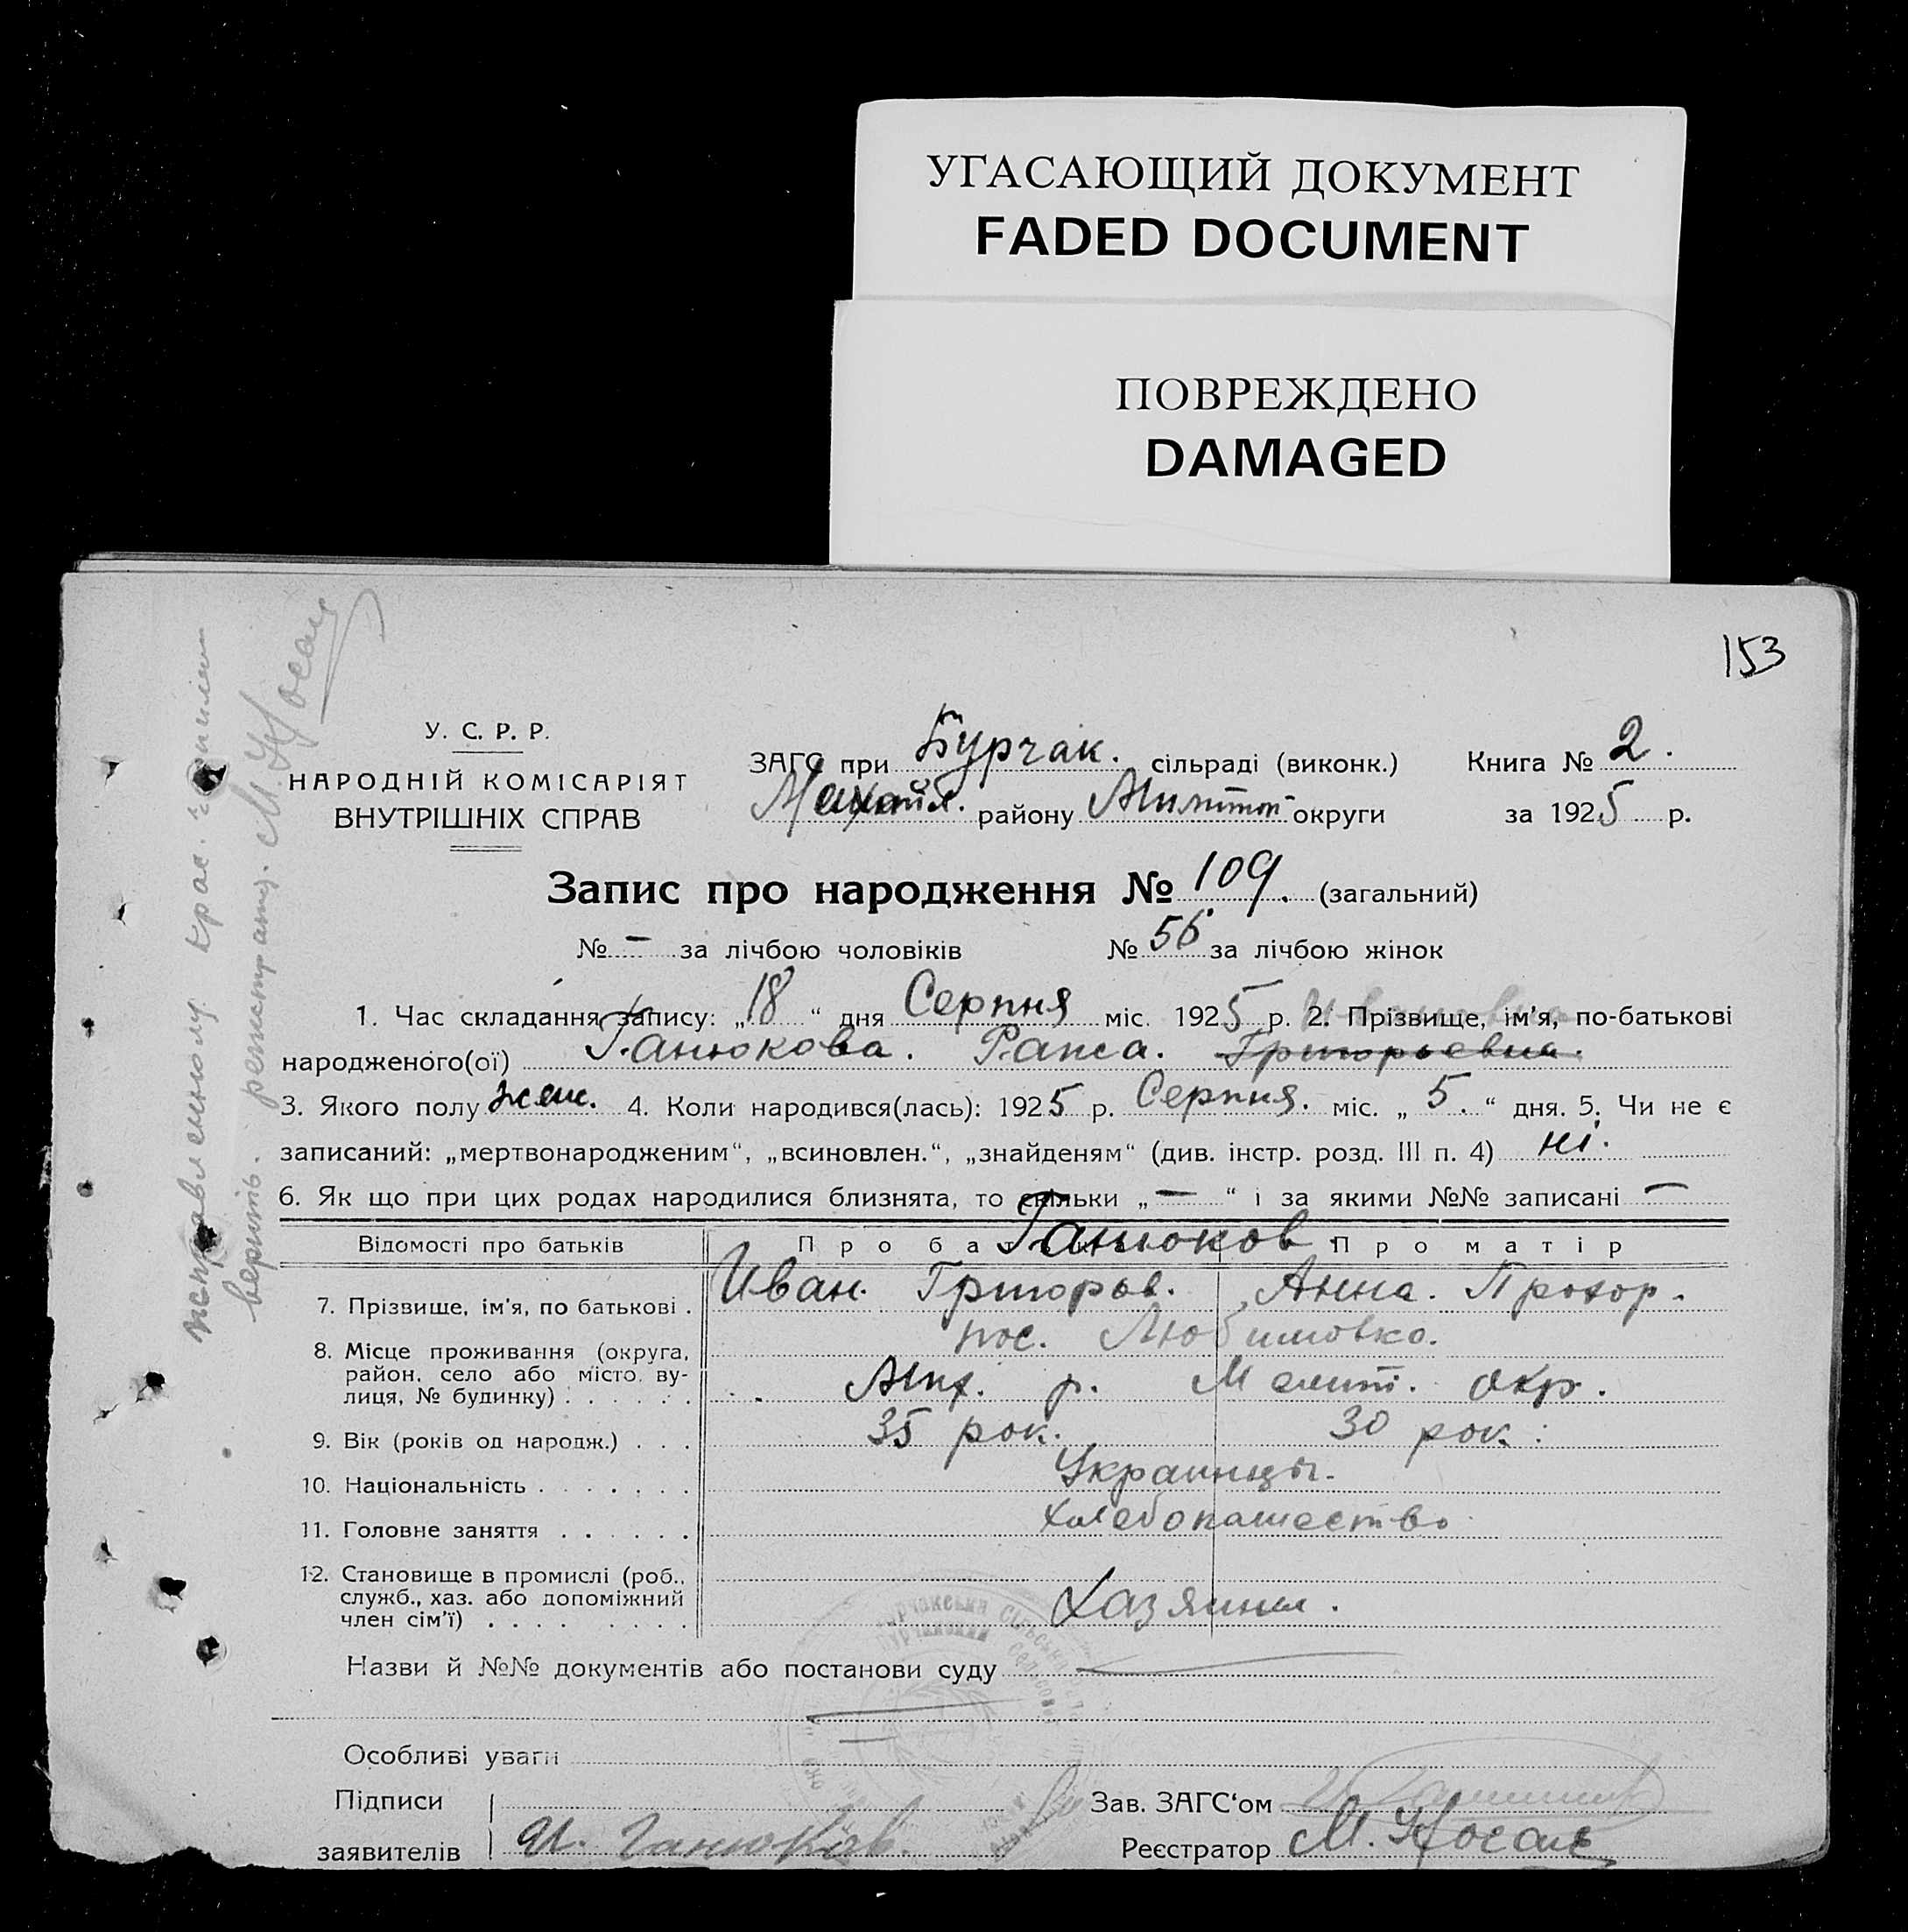 УГАСАЮЩИЙ ДОКУМЕНТ
FADED DOCUMENT
ПОВРЕЖДЕНО
DAMAGED
153
У. С. Р. Р.
НАРОДНІЙ КОМІСАРІЯТ
ВНУТРІШНІХ СПРАВ
ЗАГС при Бурчак. сільраді (виконк.) Книга № 2.
Михайл. району Мелітоп округи за 1925 р.
Запис про народження № 109. (загальний)
№ – за лічбою чоловіків № 56 за лічбою жінок
1. Час складання запису: „18“ дня Серпня міс. 1925 р. 2. Прізвище, ім'я, по-батькові
Ивановна
народженого(ої) Ганюкова. Раиса. Григорьевна.
3. Якого полу жен. 4. Коли народився(лась): 1925 р. Серпня. міс. „5.“ дня. 5. Чи не є
записаний: „мертвонародженим“, „всиновлен.“, „знайденям“ (див. інстр. розд. III п. 4) ні.
6. Як що при цих родах народилися близнята, то скільки „—“ і за якими №№ записані —
Відомості про батьків Про батька Про матір
Ганюков.
7. Прізвище, ім'я, по батькові . Иван. Григорьев. Анна. Прохор.
8. Місце проживання (округа, район, село або місто, вулиця, № будинку) . . . . . . пос. Любимовка.
Мих. р. Мелит. окр.
9. Вік (років од народж.) . . . 35 рок. 30 рок.
10. Національність . . . . . . . Украинцы.
11. Головне заняття . . . . . . Хлебопашество
12. Становище в промислі (роб., служб., хаз. або допоміжний член сім'ї) . . . . . . . . Хазяини.
Назви й №№ документів або постанови суду
Особливі уваги
Підписи
заявителів И. Ганюков.
Зав. ЗАГС‘ом
Реєстратор М. Носаль
исправленному крас. чернилам
верить. регистрат. М. Носаль